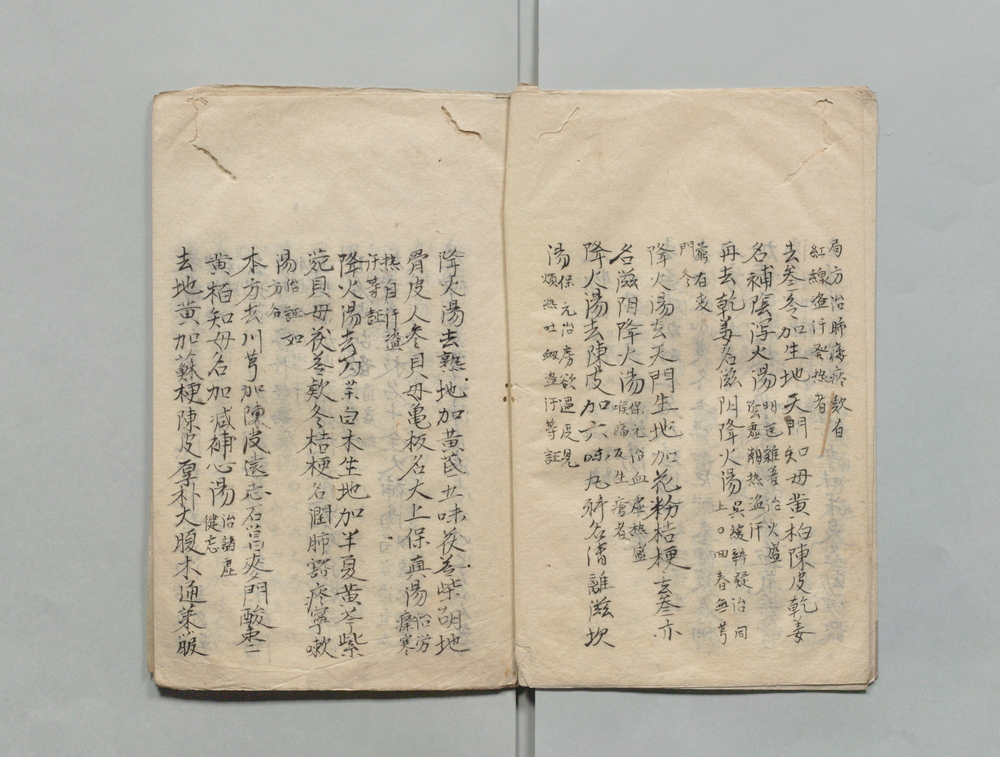 局方治肺痿痰欬有
紅線盗汗発熱者
去参冬加生地天門知母黄柏陳皮乾姜
名補陰瀉火湯
明医雜著治火盛
陰虚潮熱盗汗
再去乾姜名滋阴降火湯
呉緩辨疑治同
上〇回春無芎
蕎有麦
門冬
降火湯去天門生地加花粉桔梗玄參亦
名滋阴降火湯
保元治血虚熱盛
喉痛及生瘡者
降火湯去陳皮加六味丸觧名清離滋坎
湯
保元治房欲過度見
煩热吐衂盗汗等証
降火湯去熟地加黄芪五味茯苓柴胡地
骨皮人參貝母亀板名大上保真湯
治労瘵寒
热自汗盗
汗等証
降火湯去芍茱白朮生地加半夏黄芩紫
菀貝母茯苓欵冬桔梗名潤肺豁痰寧嗽
湯
治証如
方名
本方去川芎加陳皮遠志石菖麥門酸枣
黄栢知母名加减補心湯
治諸虚
健忘
去地黄加蘇梗陳皮厚朴大腹木通莱菔